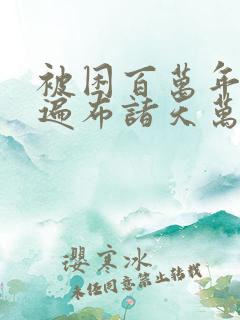 被困百萬年
遍布諸天萬
瓔寒冰
未經同意禁止轉載